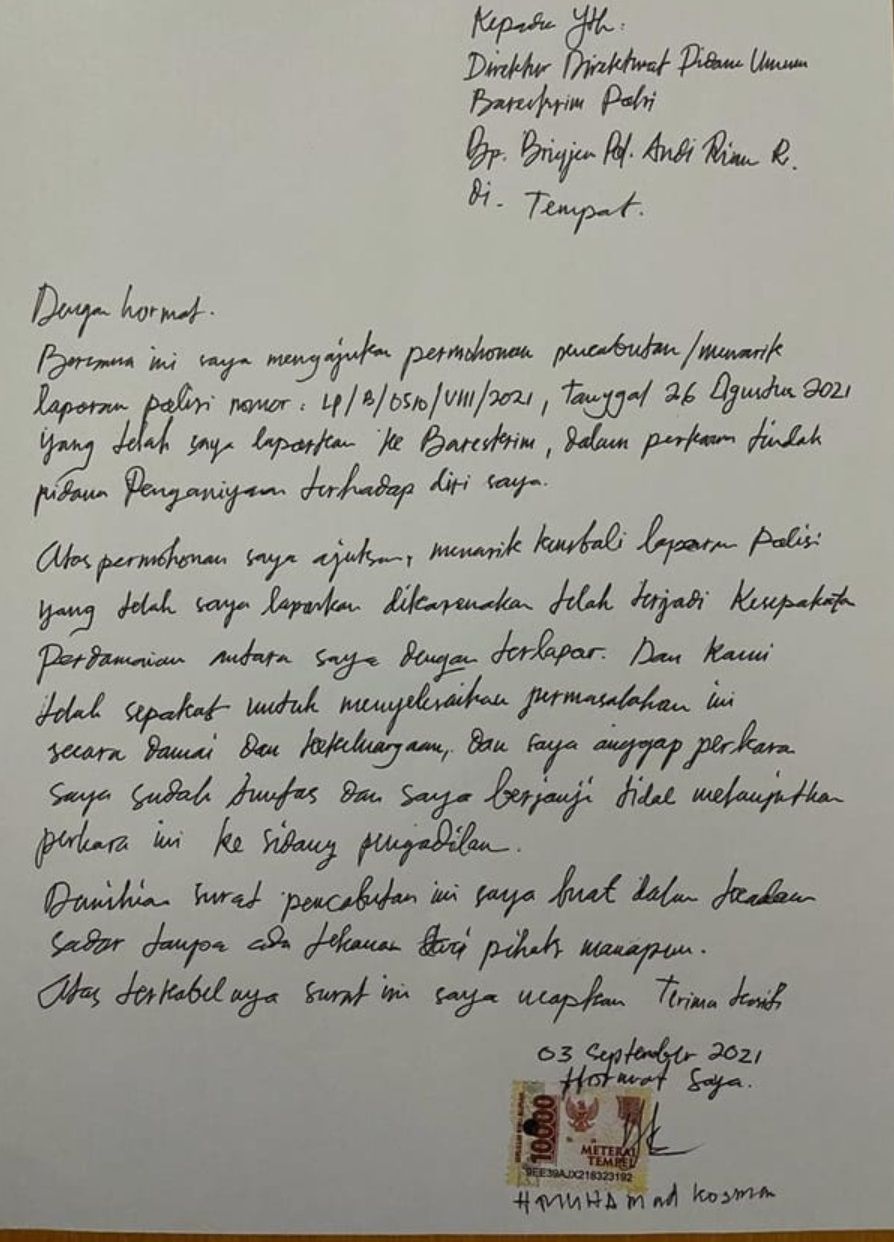 Kepada Yth:
Direktur Direktorat Pidana Umum
Bareskrim Polri
Bp. Brigjen Pol. Andi Rian R.
di - Tempat.
Dengan hormat.
Bersama ini saya mengajukan permohonan pencabutan/menarik
laporan polisi nomor: LP/B/0510/VIII/2021, Tanggal 26 Agustus 2021
yang telah saya laporkan ke Bareskrim, dalam perkara tindak
pidana Penganiyaan terhadap diri saya.
Atas permohonan saya ajukan, menarik kembali laporan Polisi
yang telah saya laporkan dikarenakan telah terjadi Kesepakatan
Perdamaian antara saya dengan terlapor. Dan Kami
telah sepakat untuk menyelesaikan permasalahan ini
secara damai dan kekeluargaan, dan saya anggap perkara
saya sudah tuntas dan saya berjanji tidak melanjutkan
perkara ini ke sidang pengadilan.
Demikian surat pencabutan ini saya buat dalam keadaan
sadar tanpa ada tekanan dari pihak manapun.
Atas terkabelnya surat ini saya ucapkan Terima kasih
03 September 2021
Hormat Saya.
10000
METERAI
TEMPEL
9EE39AJX218323192
MUHAmad kosman